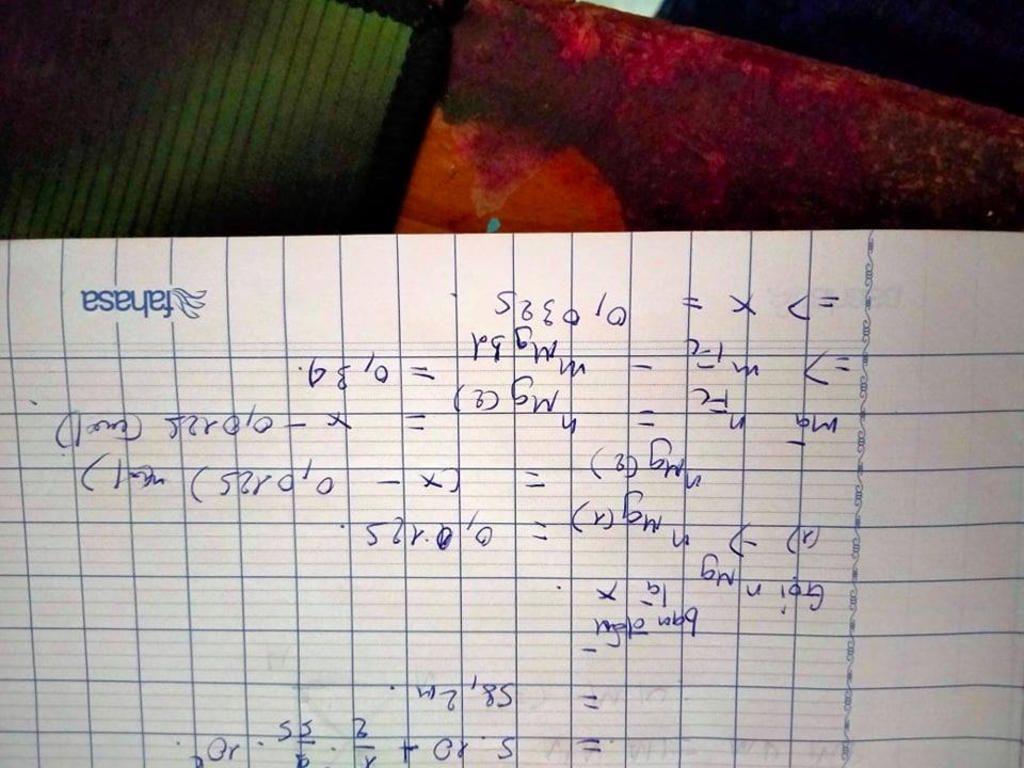 = 5.10 + 1/2 . 9/55 . 10²
= 58,2m.
Gọi n Mg ban đầu là x.
(1) → n Mg(1) = 0,0125.
n Mg(2) = (x - 0,0125) mol)
Mà n Fe = n Mg(2) = x - 0,0125 (mol)
=> m Fe - m Mg bđ = 0,34.
=> x = 0,0325
fahasa